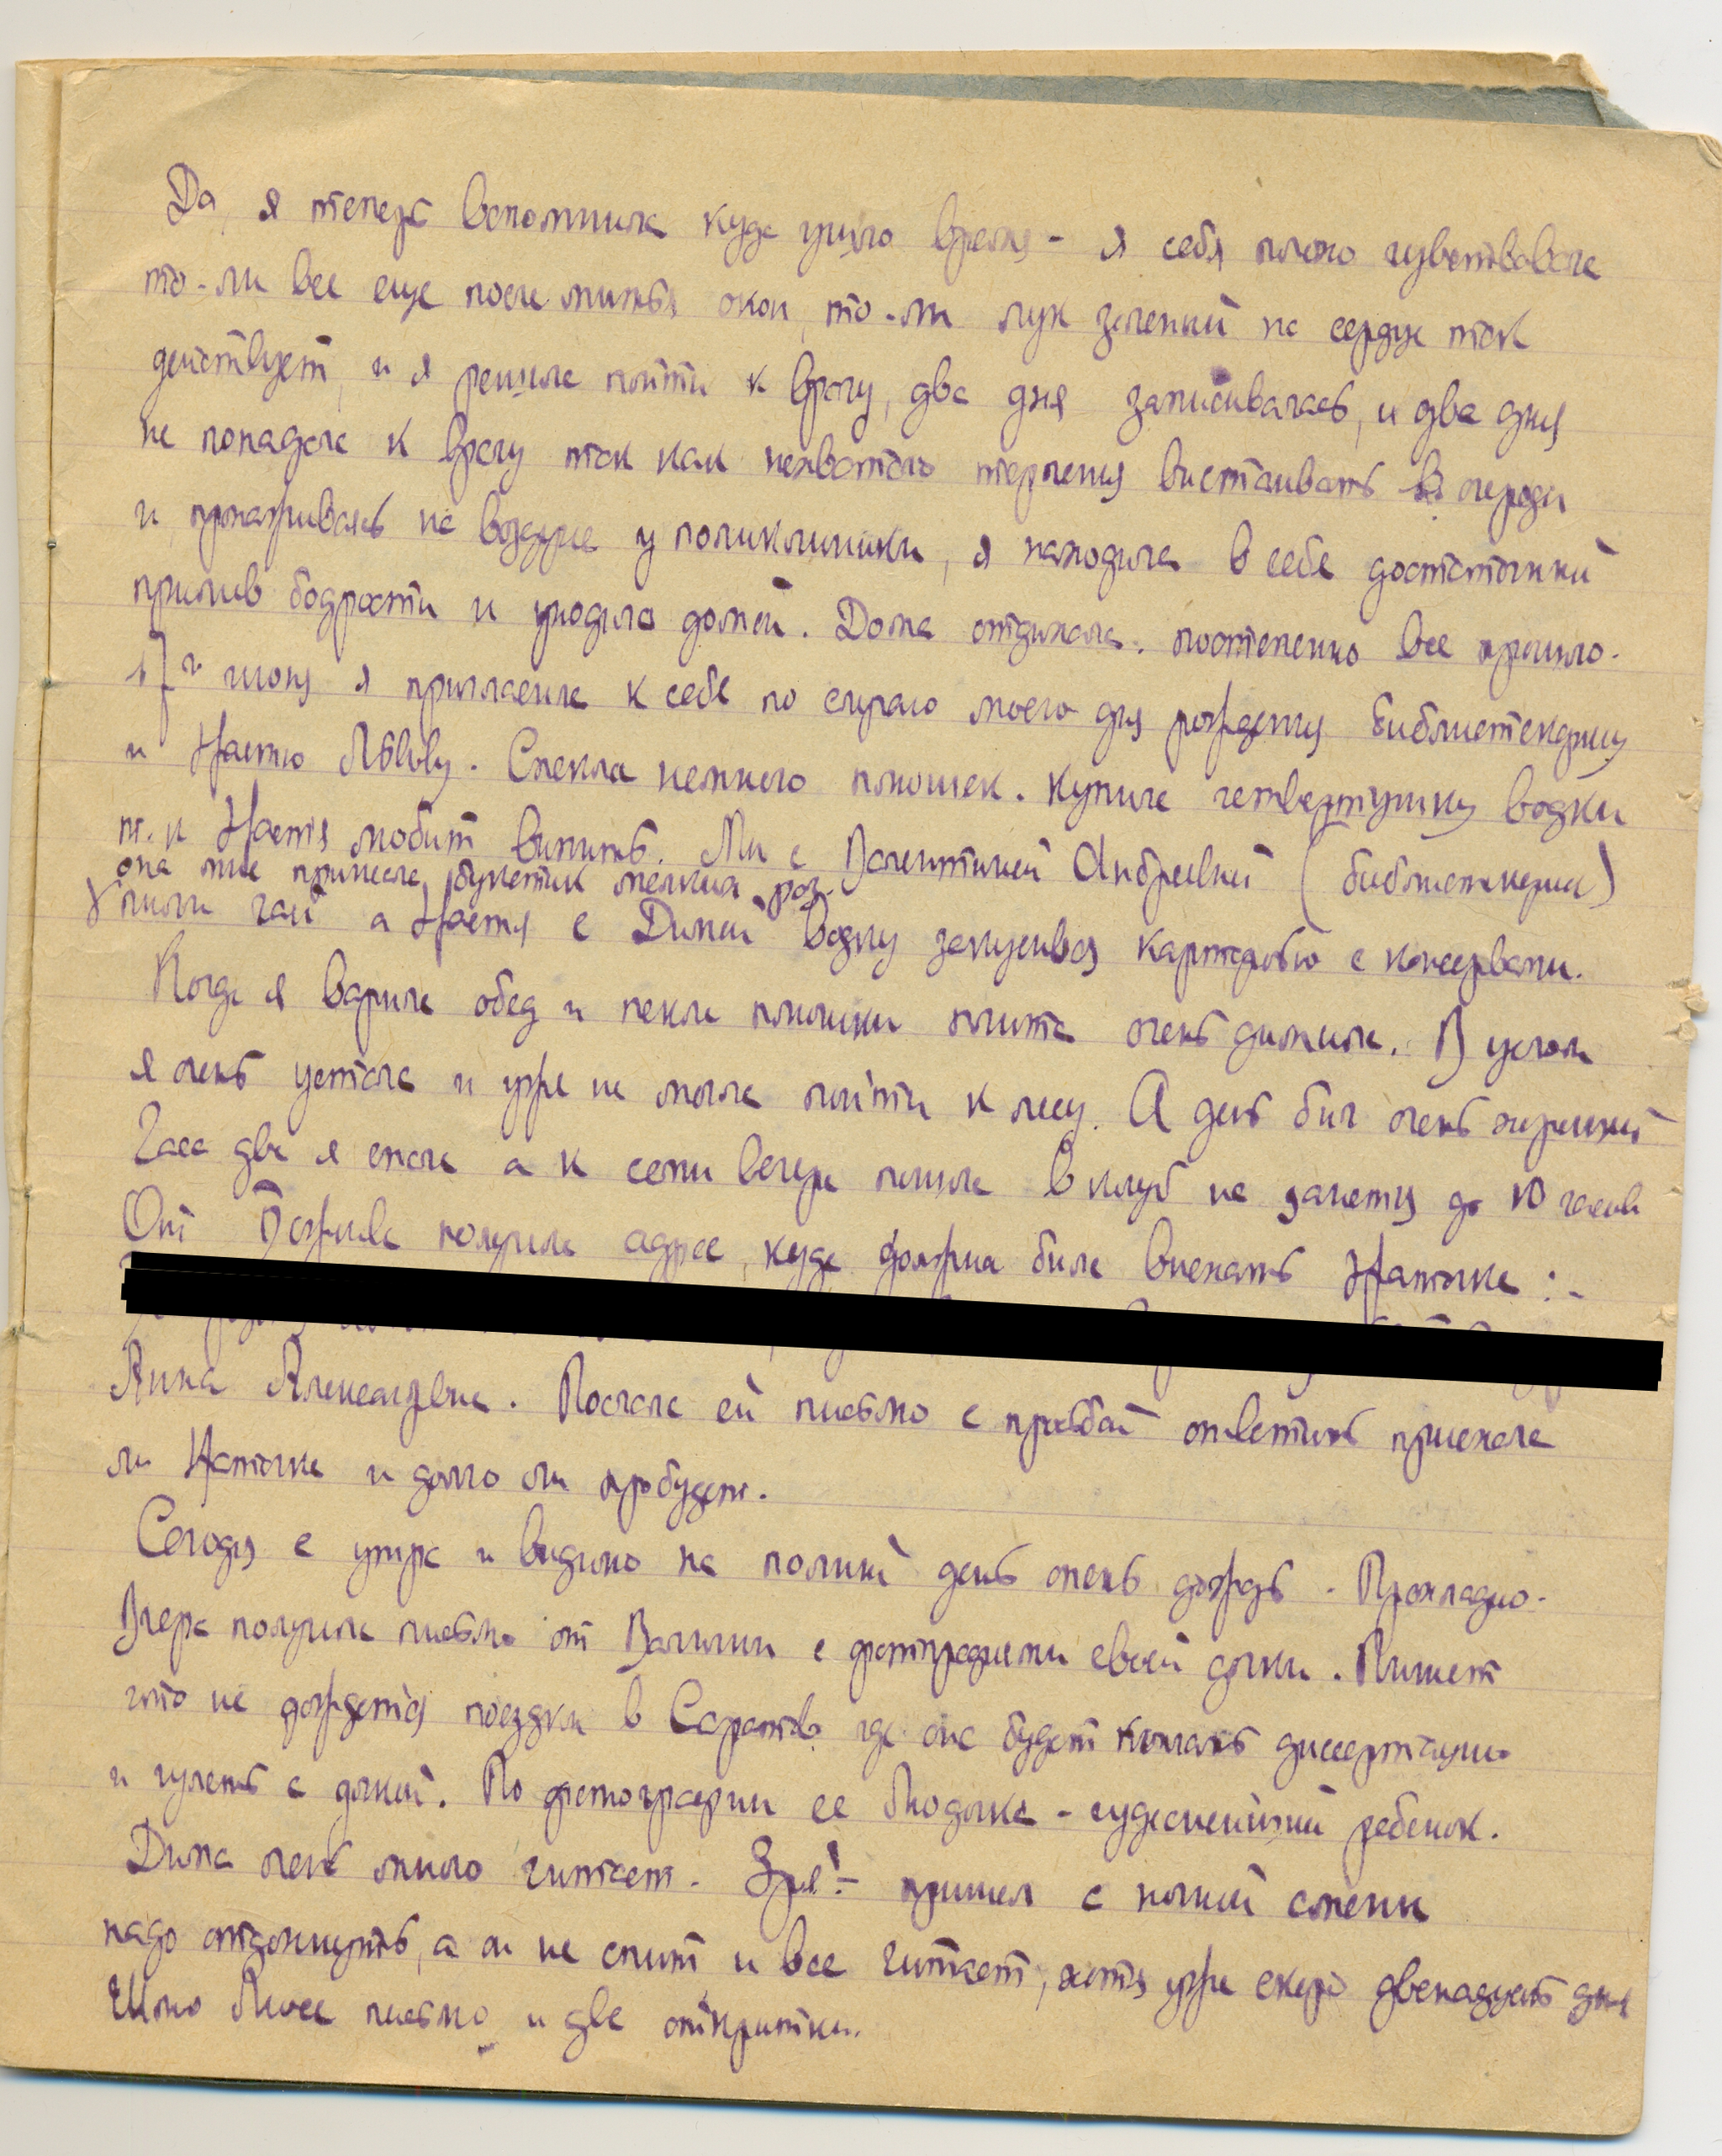 Да, я теперь вспомнила куда ушло время - я себя плохо чувствовала
то-ли все еще после мытья окон, то-ли лук зеленый на сердце так
действует, и я решила пойти к врачу, два дня записывалась, и два дня
не попадала к врачу так как нехватало терпения выстаивать в очереди
и, прохаживаясь на воздухе у поликлиники, я находила в себе достаточный
прилив бодрости и уходила домой. Дома отдыхала. постепенно все прошло.
июня я пригласила к себе по случаю моего дня рождения библиотекаршу
и Настю Львову. Спекла немного плюшек. Купила четвертушку водки
т. к Настя любит выпить. Мы с Валентиной Андреевной (библиотекарша)
она мне принесла букетик мелких роз.
пили чай а Настя с Димой водку закусывая картофелью с консервами.
Когда я варила обед и пекла плюшки плита очень дымила. В целом
я очень устала и уже не могла пойти к лесу. А день был очень хороший
Часа два я спала а к семи вечера пошла в клуб на занятия до 10 часов
От получила адрес, куда должна была выехать Наточка :-
Анна Александровна. Послала ей письмо с просьбой ответить приехала
ли Наточка и долго ли пробудет.
Сегодня с утра и видимо на полный день опять дождь. Прохладно.
Вчера получила письмо от Валюши с фотографиями своей дочки. Пишет
что не дождется поездки в Саратов где она будет кончать диссертацию
и гулять с дочкой. По фотографии ее Людочка - чудеснейший ребенок.
Дима очень много читает. Зря! - пришел с ночной смены
надо отдохнуть, а он не спит и все читает, хотя уже скоро двенадцать дня
Шлю Люсе письмо и две открытки.